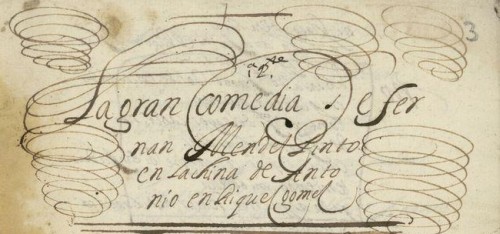 3
1ª pte
2.
La gran comedia de fer
nan Mendez Pinto
en la china de Anto
nio enRiquez gomez